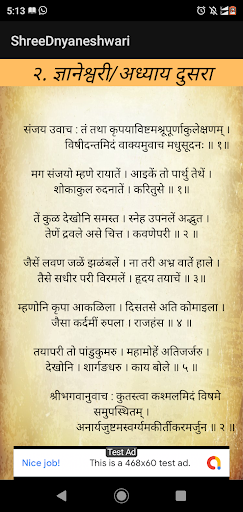 5:13
ShreeDnyaneshwari
२. ज्ञानेश्वरी/अध्याय दुसरा
संजय उवाच : तं तथा कृपयाविष्टमश्रूपूर्णाकुलेक्षणम् ।
विषीदन्तमिदं वाक्यमुवाच मधुसूदनः ॥ १॥
मग संजयो म्हणे रायातें । आइकें तो पार्थु तेथें ।
शोकाकुल रुदनातें । करितुसे ॥ १॥
तें कुळ देखोनि समस्त । स्नेह उपनलें अद्भुत ।
तेणें द्रवले असे चित्त । कवणेपरी ॥ २॥
जैसें लवण जळें झळंबलें । ना तरी अभ्र वातें हाले ।
तैसे सधीर परी विरमलें । हृदय तयाचें ॥ ३॥
म्हणोनि कृपा आकळिला । दिसतसे अति कोमाइला ।
जैसा कर्दमीं रुपला । राजहंस ॥ ४ ॥
तयापरी तो पांडुकुमरु । महामोहें अतिजर्जरु ।
देखोनि । शार्ङगधरु । काय बोले ॥ ५ ॥
श्रीभगवानुवाच : कुतस्त्वा कश्मलमिदं विषमे
समुपस्थितम् ।
अनार्यजुष्टमस्वर्ग्यमकीर्तीकरमर्जुन ॥ २ ॥
Test Ad
Nice job! This is a 468x60 test ad.